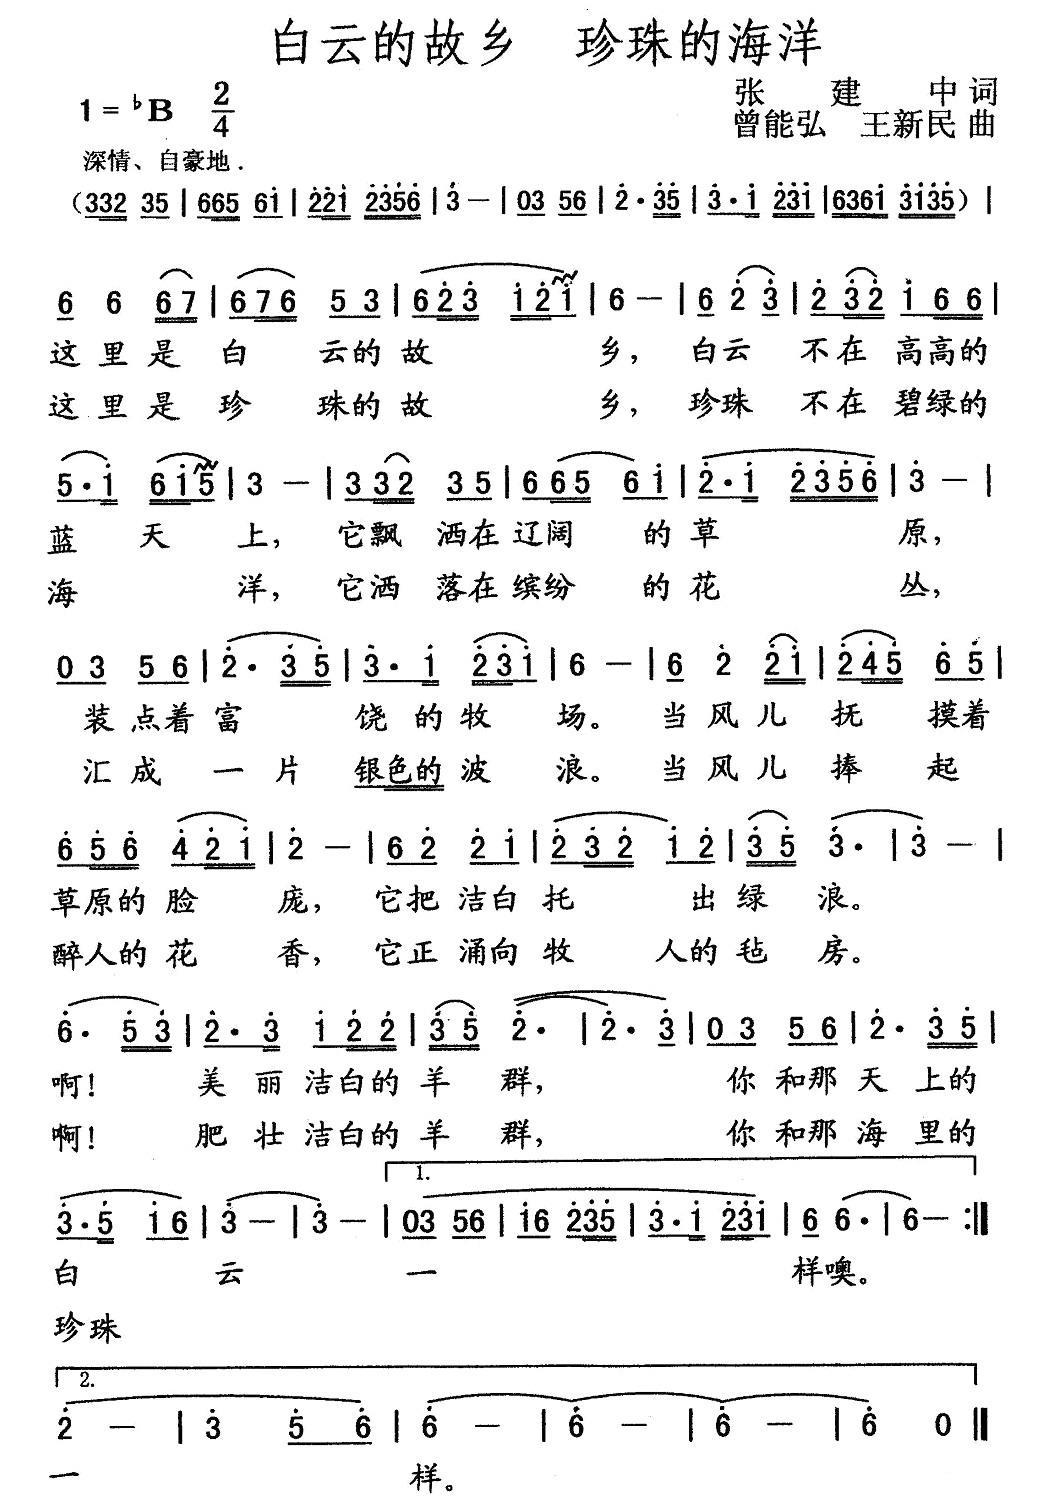 白云的故乡 珍珠的海洋
1=♭B 2/4
张建中词
曾能弘 王新民曲
深情、自豪地.
(332 35 | 665 6i | 22i 2356 | 3 — | 03 56 | 2·35 | 3·i 23i | 636i 3i35) |
6 6 67 | 676 53 | 623 i2i | 6 — | 6 23 | 232 i66 |
这里是白云的故乡，白云不在高高的
这里是珍珠的故乡，珍珠不在碧绿的
5·i 6i5 | 3 — | 332 35 | 665 6i | 2·i 2356 | 3 — |
蓝天上，它飘洒在辽阔的草原，
海洋，它洒落在缤纷的花丛，
03 56 | 2·35 | 3·i 23i | 6 — | 6 2 2i | 245 65 |
装点着富饶的牧场。当风儿抚摸着
汇成一片银色的波浪。当风儿捧起
656 42i | 2 — | 62 2i | 232 i2 | 35 3· | 3 — |
草原的脸庞，它把洁白托出绿浪。
醉人的花香，它正涌向牧人的毡房。
6·53 | 2·3 i22 | 35 2· | 2·3 | 03 56 | 2·35 |
啊！美丽洁白的羊群，你和那天上的
啊！肥壮洁白的羊群，你和那海里的
1.
3·5 i6 | 3 — | 3 — | 03 56 | i6 235 | 3·i 23i | 6 6· | 6 — :‖
白云一样噢。
珍珠
2.
2 — | 3 56 | 6 — | 6 — | 6 0 ‖
一样。